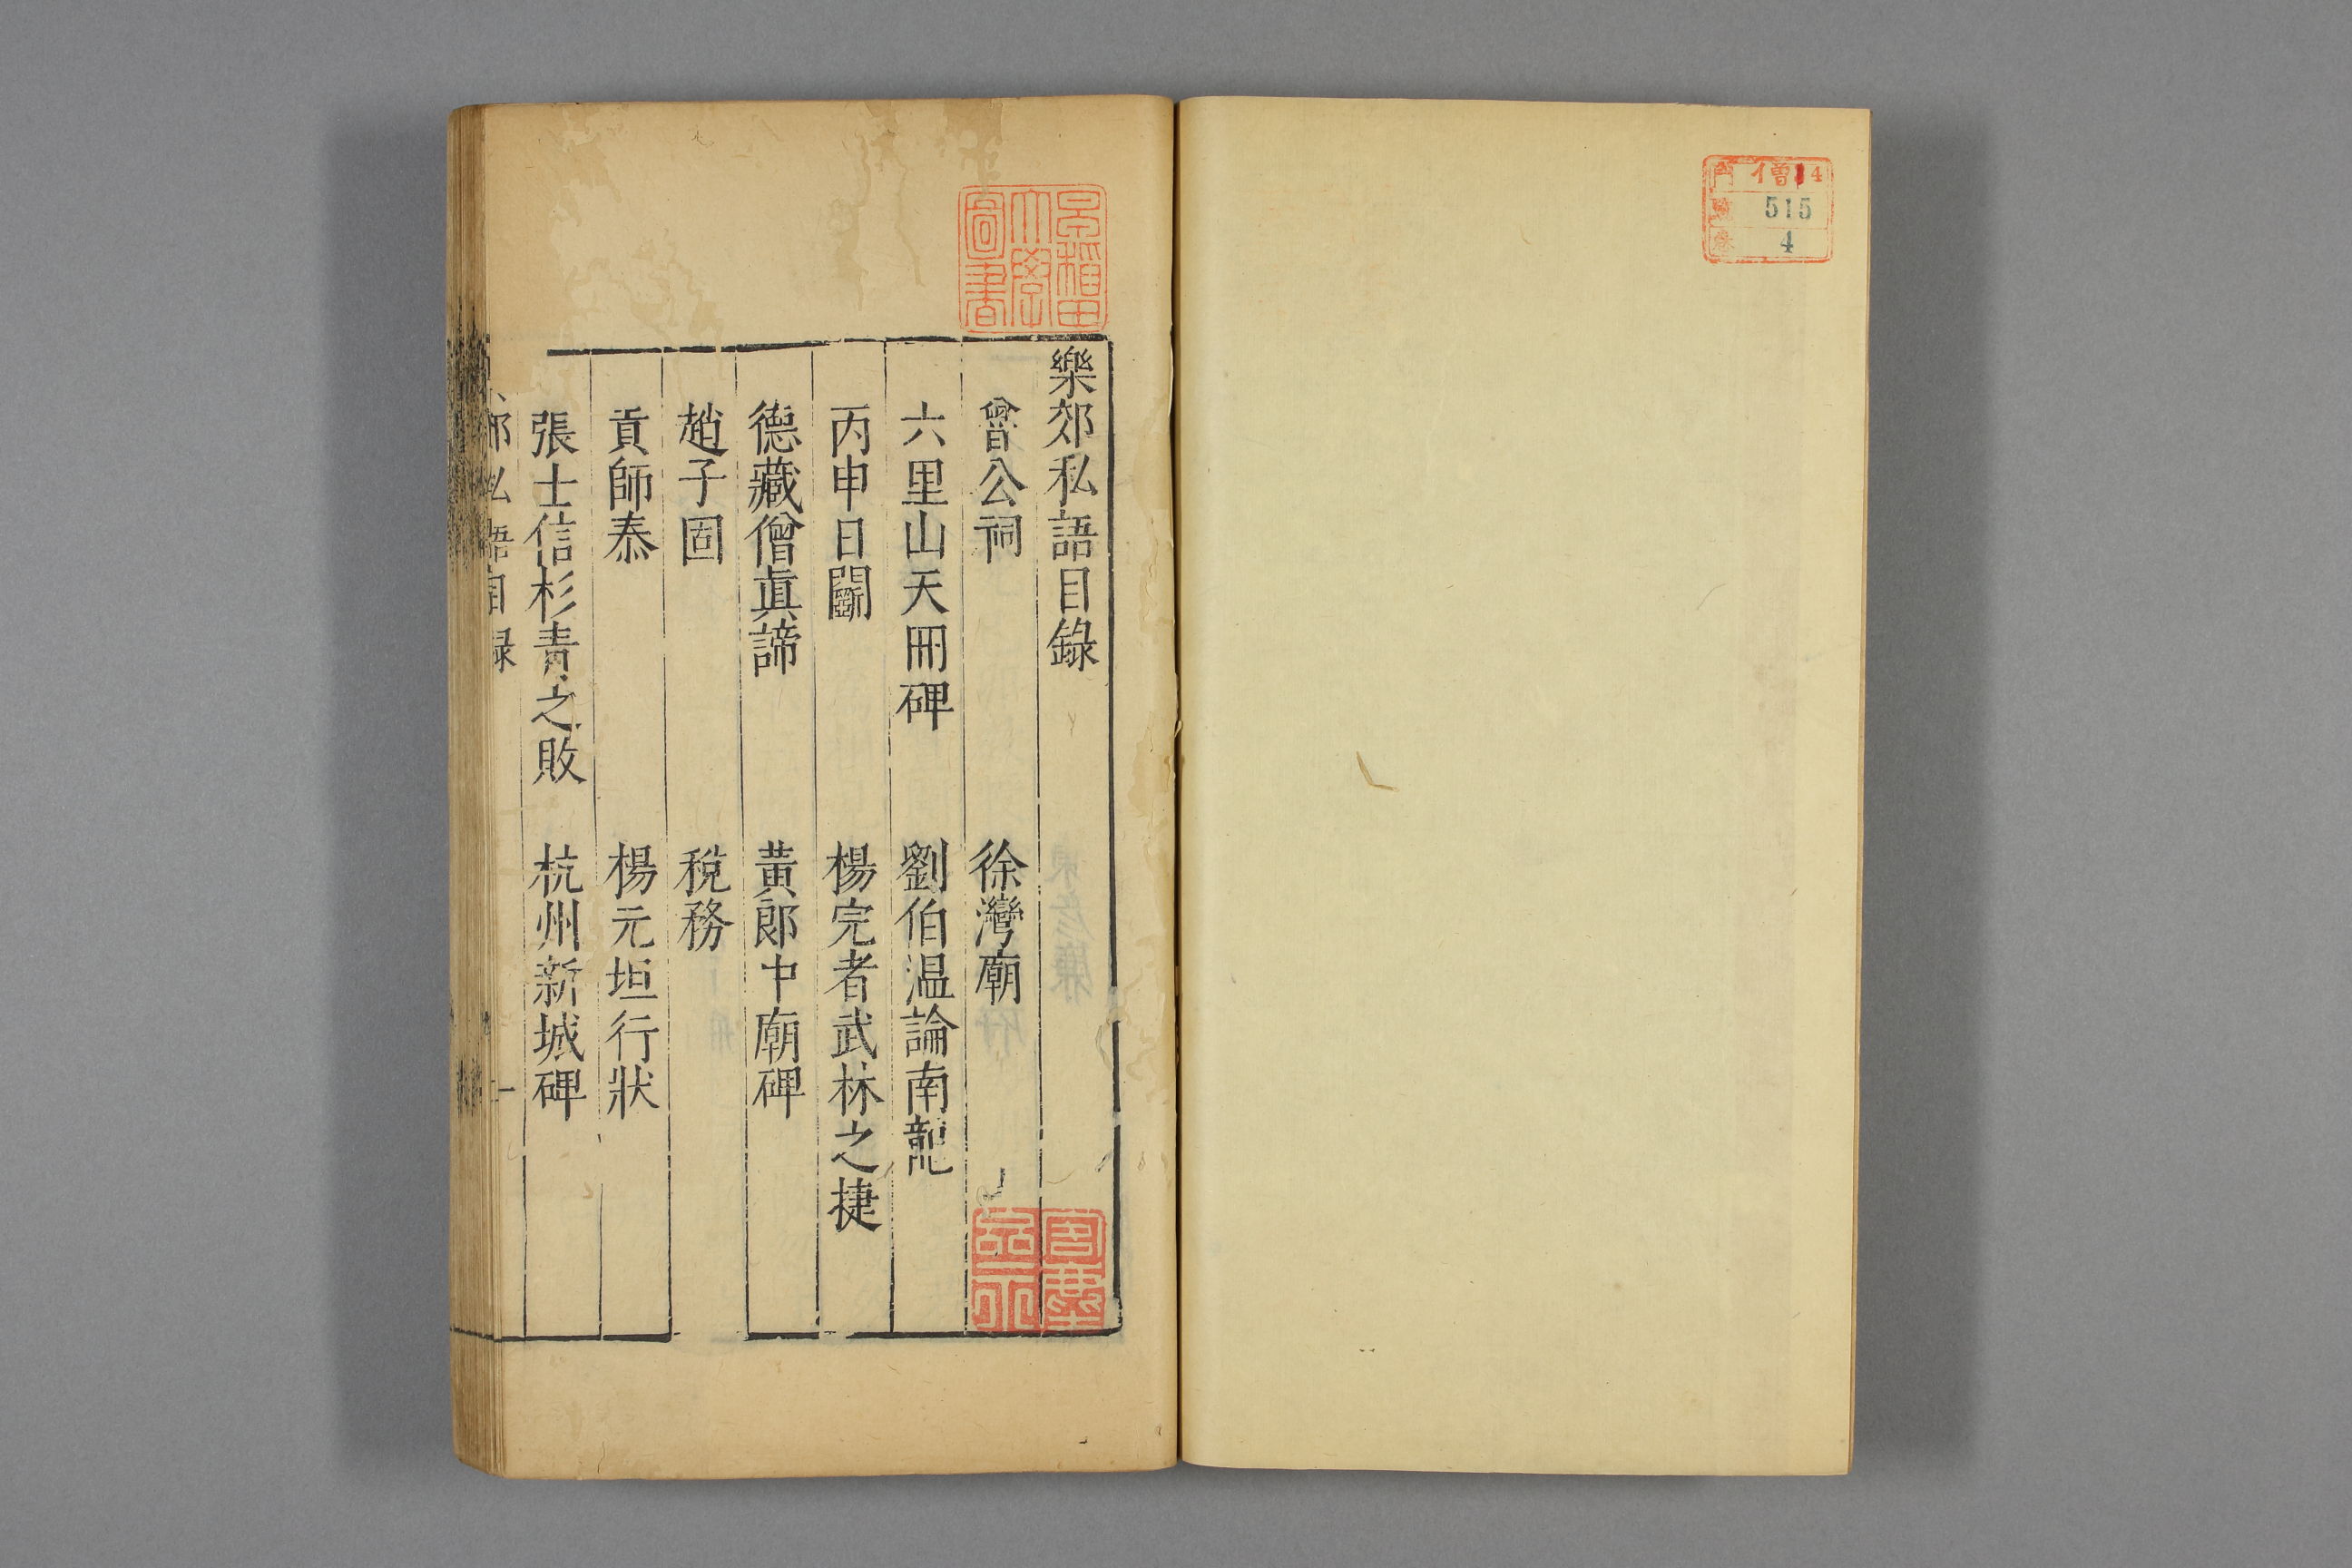 門 僧 4
號 515
卷 4
早稻田大學圖書
樂郊私語目錄
曾公祠 徐灣廟
六里山天冊碑 劉伯温論南龍
丙申日鬬 楊完者武林之捷
德藏僧眞諦 黃郎中廟碑
趙子固 稅務
貢師泰 楊元垣行狀
張士信杉青之敗 杭州新城碑
郊私語目録 一